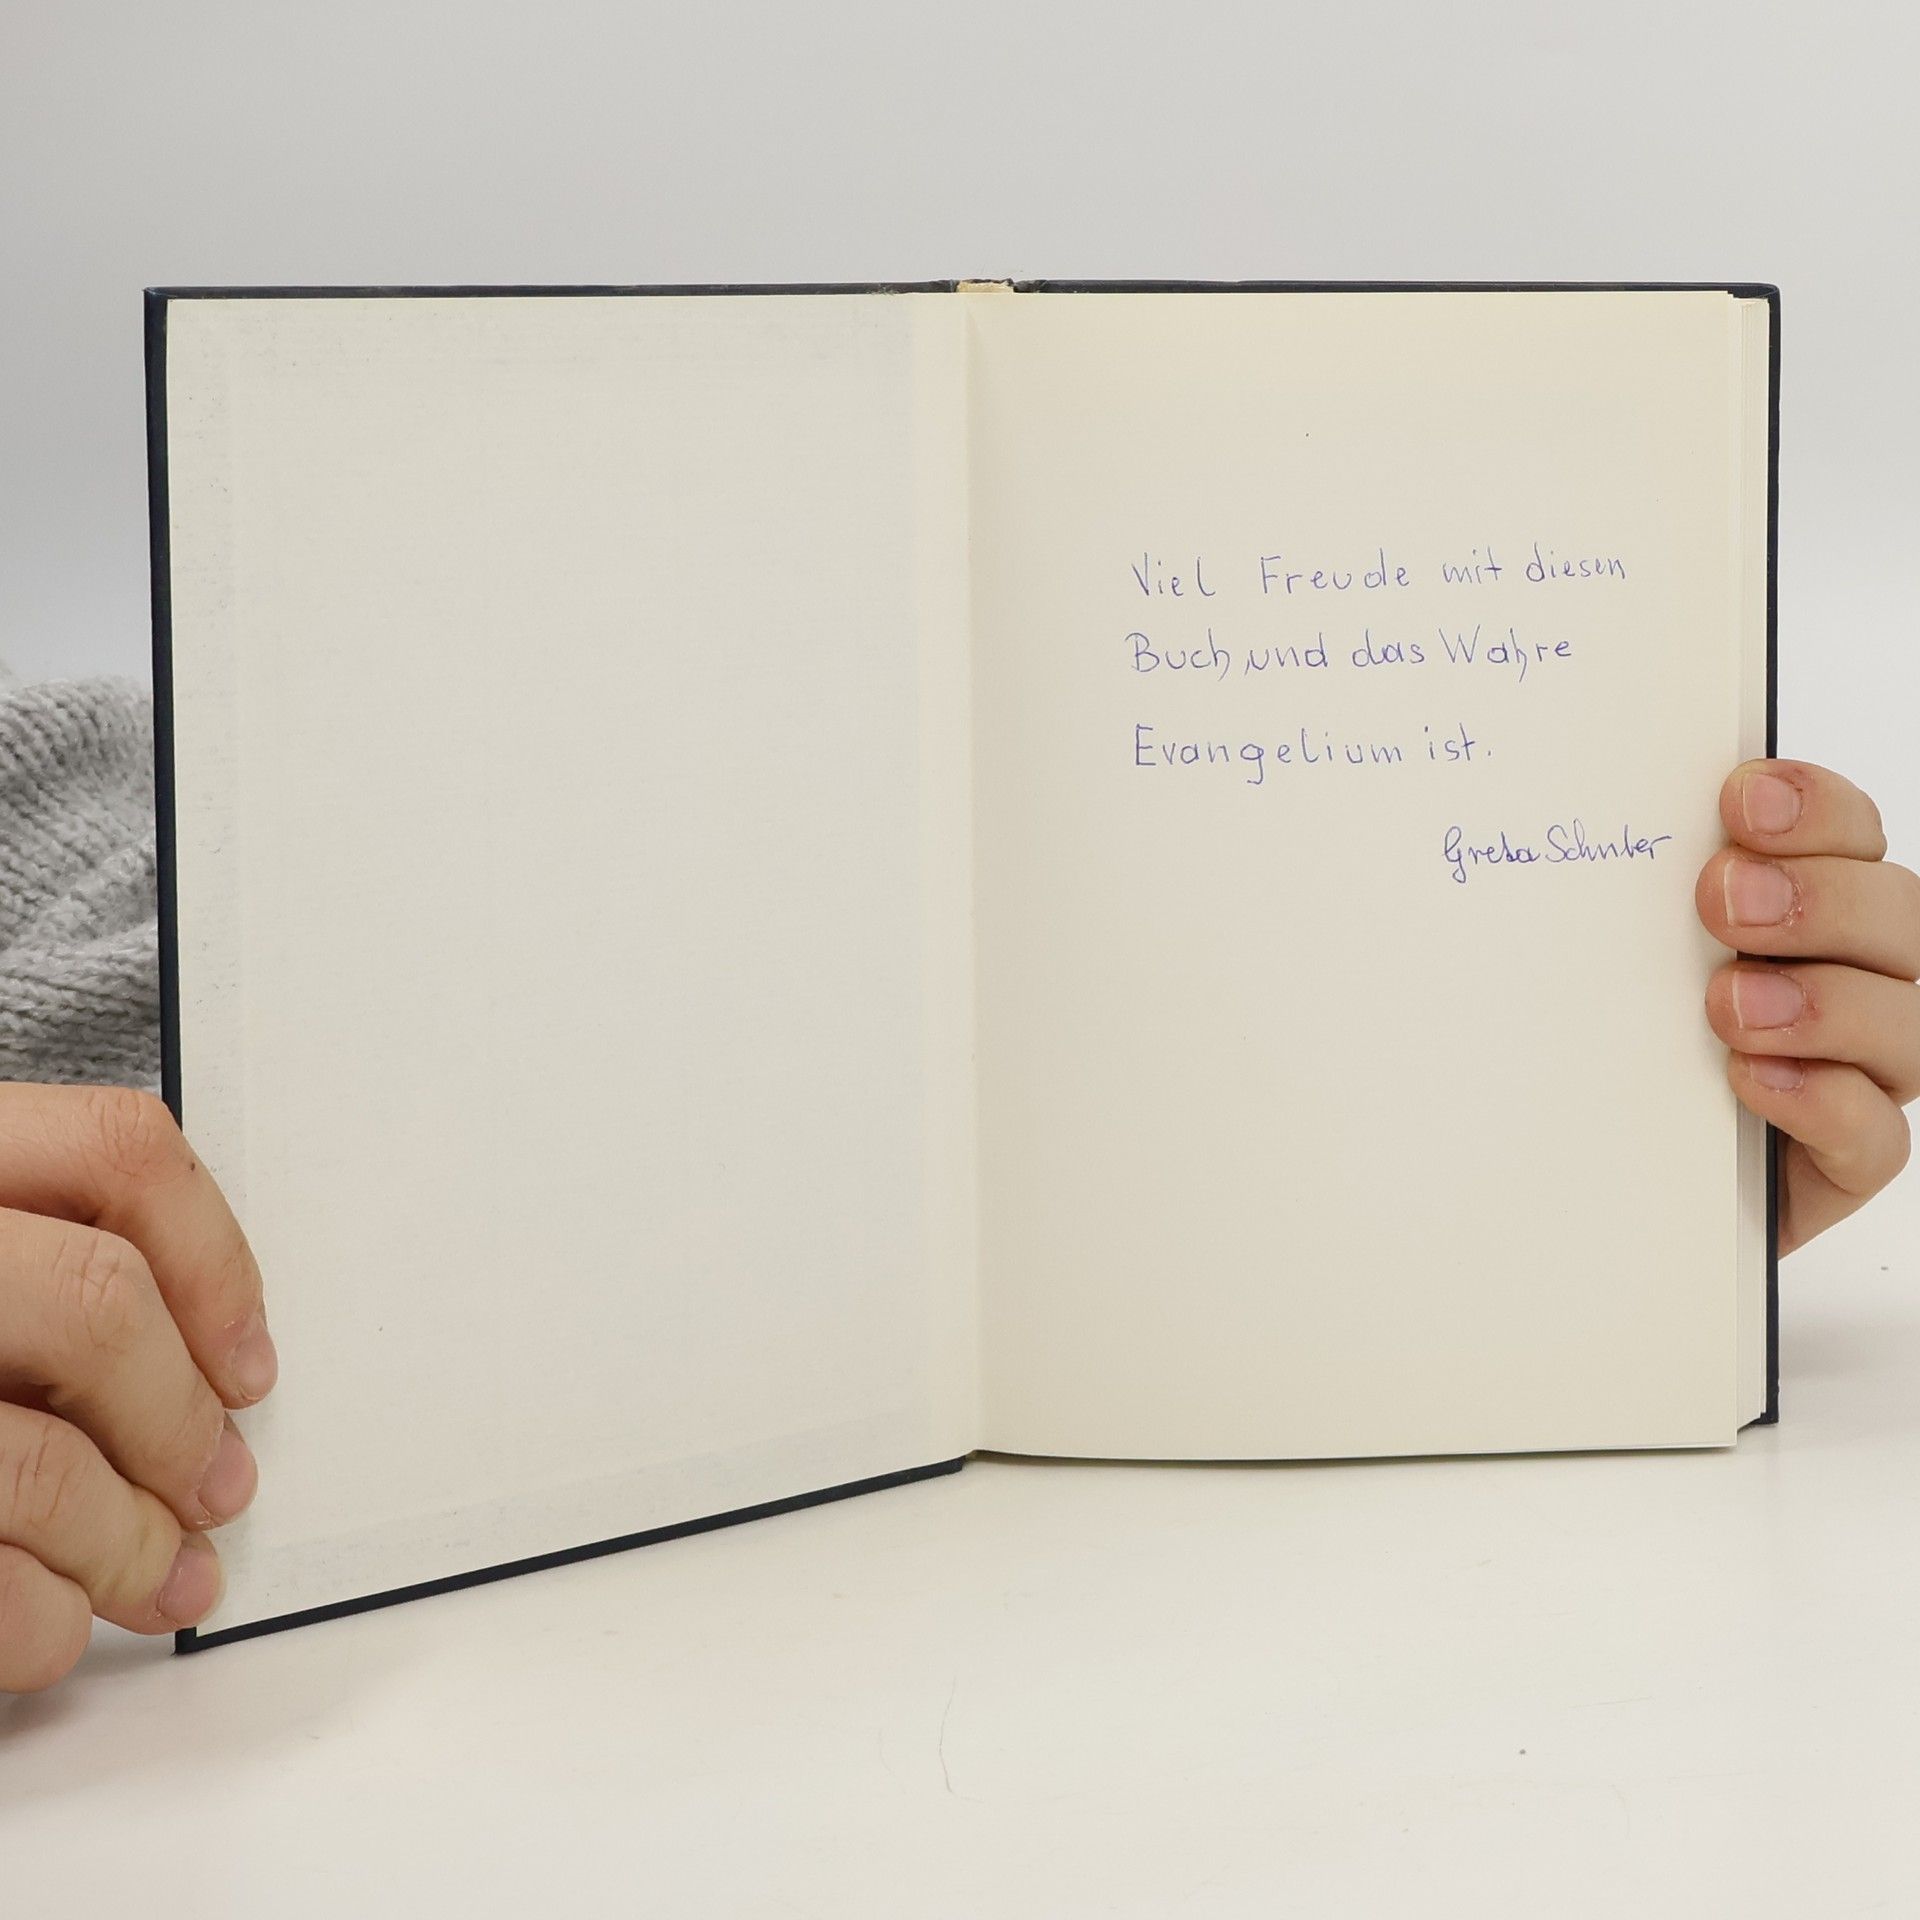 Viel Freude mit diesen
Buch, und das Wahre
Evangelium ist.
Greta